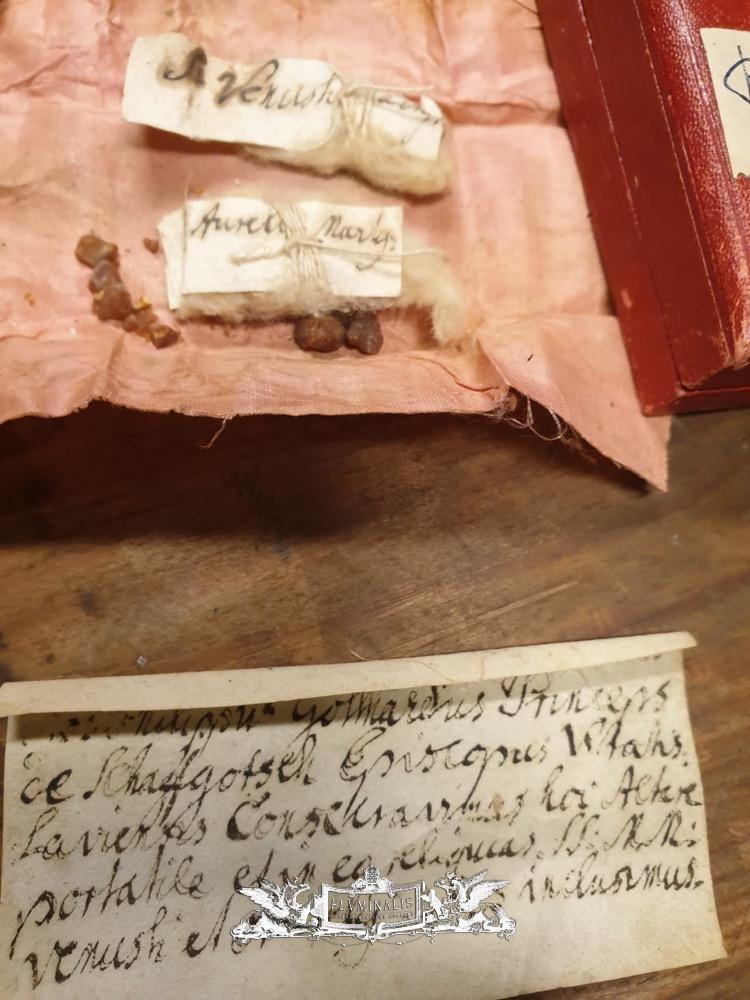 S. Venusti
Aureli Martyr
Philippus Gotthardus Princeps
de Schaffgotsch Episcopus Wratis
laviensis Consecravimus hoc Altare
portatile et in eo reliquias SS. M.M:
Venusti et inclusimus.
FLUMINALIS